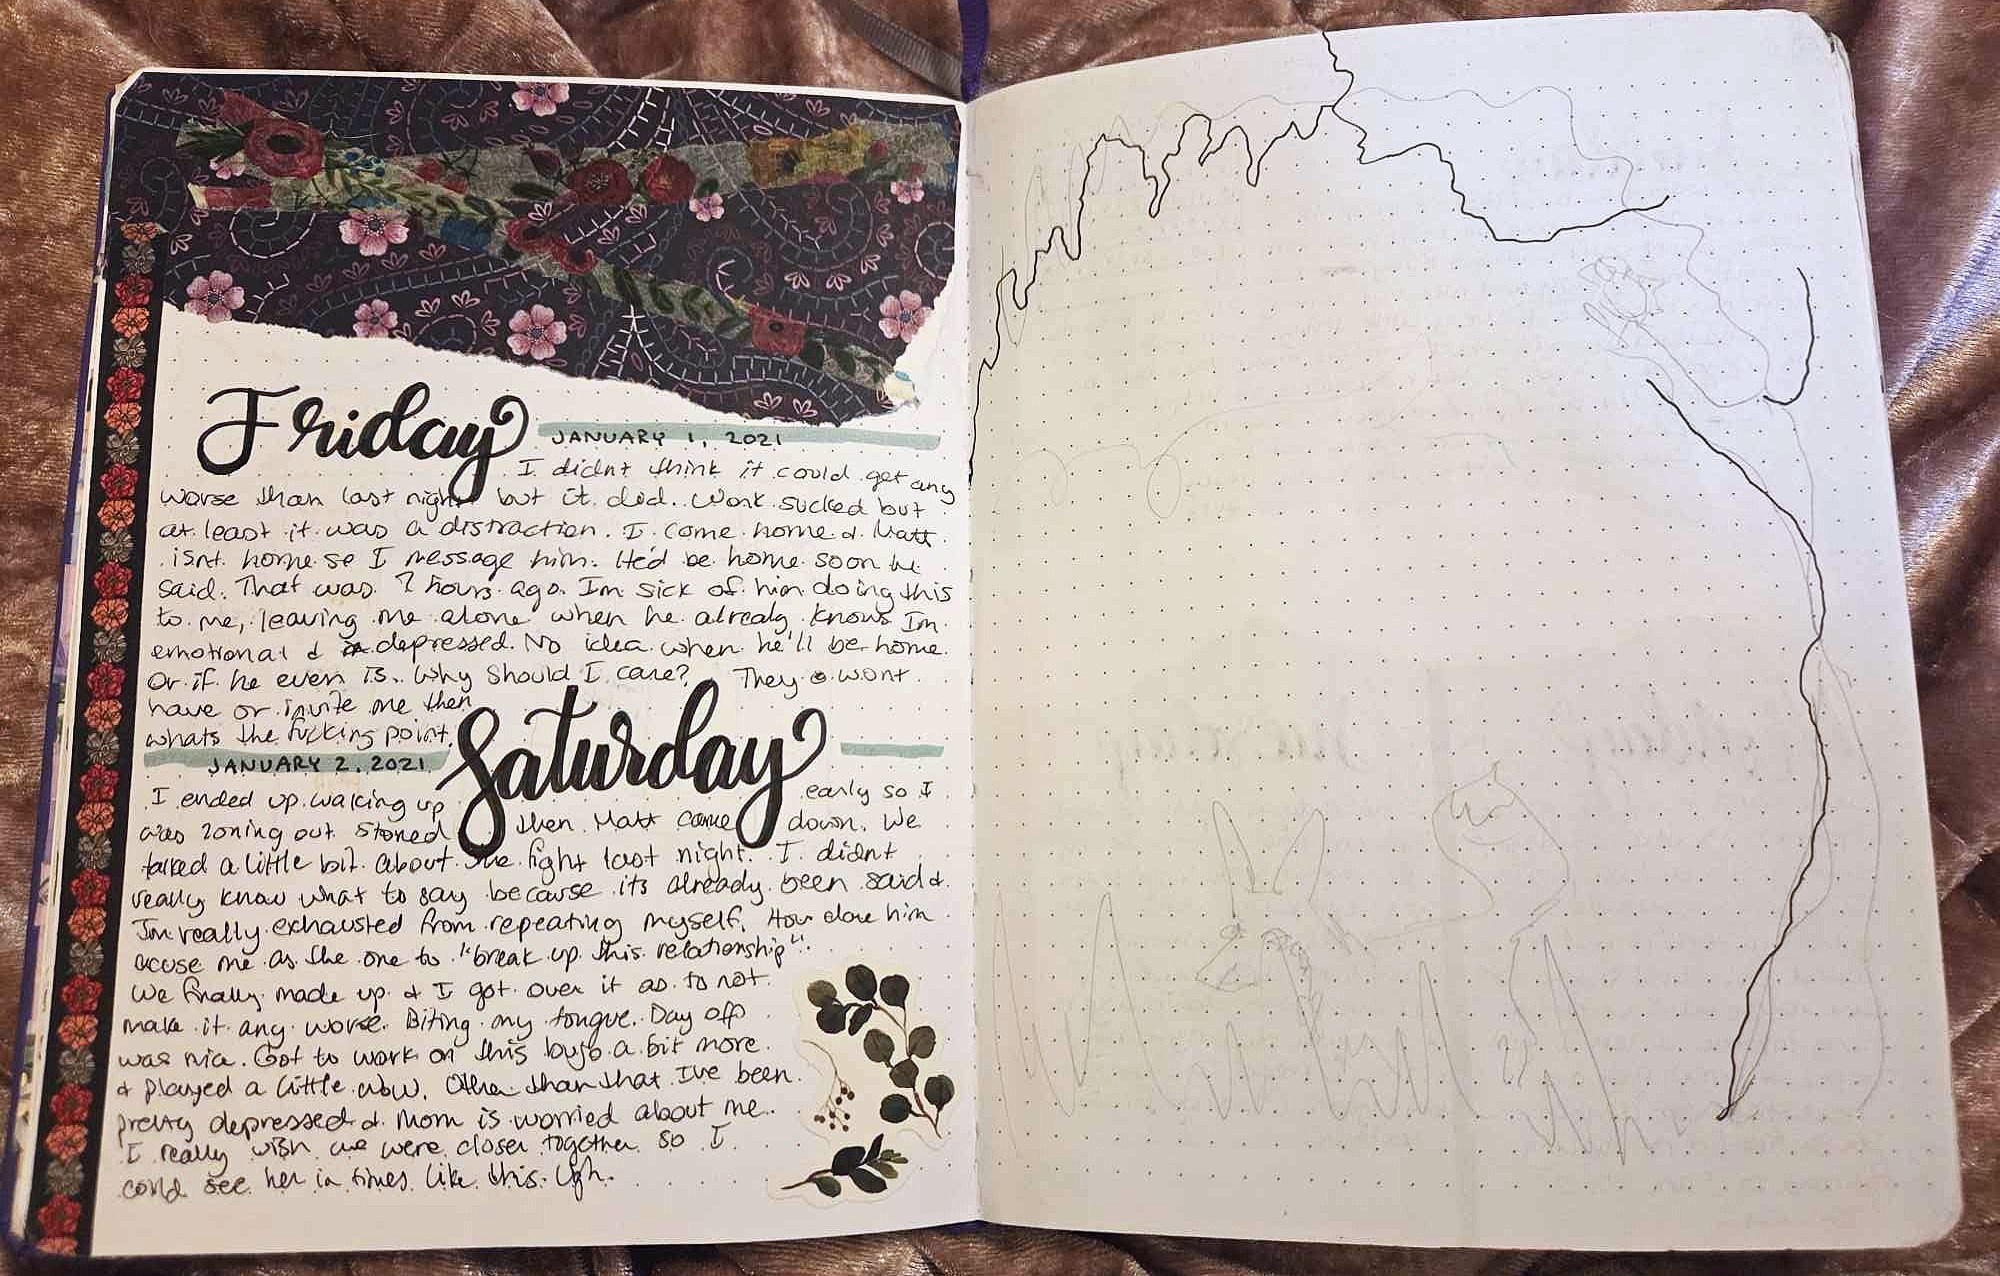 Friday
JANUARY 1, 2021
I didnt think it could get any
worse than last night but it did. Work sucked but
at least it was a distraction. I come home & Matt
isnt home so I message him. He'd be home soon he
said. That was 7 hours ago. Im sick of him doing this
to me, leaving me alone when he already knows Im
emotional & depressed. No idea when he'll be home
or if he even is. Why should I care? They wont
have or invite me then
whats the fucking point.
Saturday
JANUARY 2, 2021
I ended up waking up early so I
was zoning out stoned then Matt came down. We
talked a little bit about the fight last night. I didnt
really know what to say because its already been said &
Im really exhausted from repeating myself. How dare him
acuse me as the one to "break up this relationship".
We finally made up & I got over it as to not
make it any worse. Biting my tongue. Day off
was nice. Got to work on this bujo a bit more
& played a little wow. Other than that I've been
pretty depressed & Mom is worried about me.
I really wish we were closer together so I
could see her in times like this. Ugh.